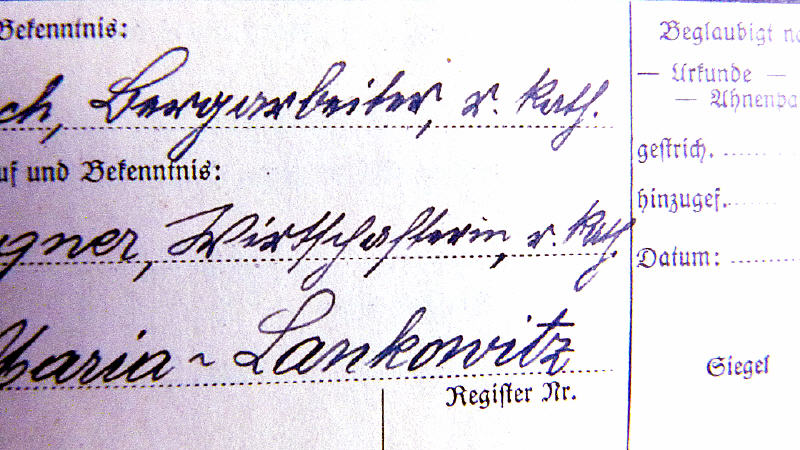 Bekenntnis:
ch, Bergarbeiter, r. kath.
uf und Bekenntnis:
gner, Wirtschafterin, r. kath.
Maria ~ Lankowitz
Register Nr.
Beglaubigt na
— Urkunde —
— Ahnenpa
gestrich. ......
hinzugef. ......
Datum: ......
Siegel